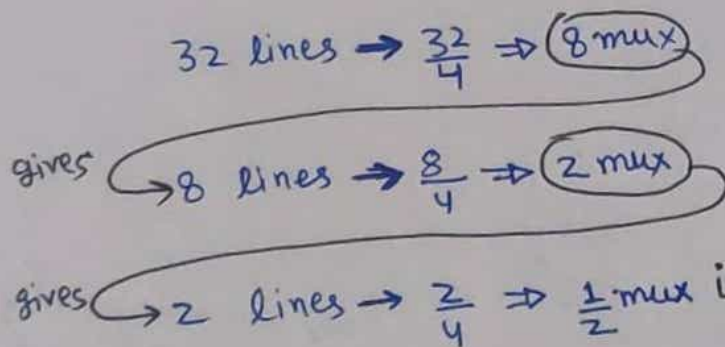 32 lines → 32/4 ⇒ 8 mux
gives 8 lines → 8/4 ⇒ 2 mux
gives 2 lines → 2/4 ⇒ 1/2 mux i